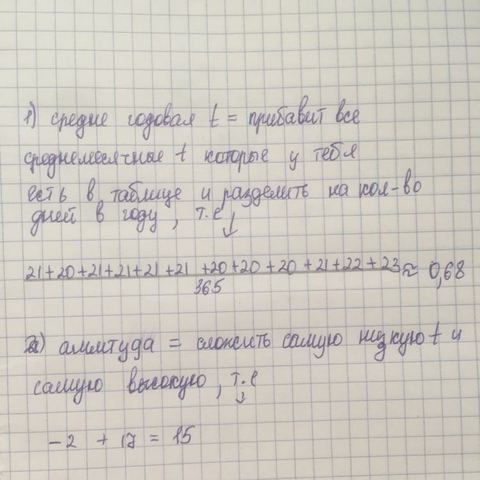 1) средне годовая t = прибавит все
среднемесячные t которые у тебя
есть в таблице и разделить на кол-во
дней в году, т.е ↓
21+20+21+21+21+21+20+20+20+21+22+23 ≈ 0,68
365
2) амлитуда = сложить самую низкую t и
самую высокую, т.е ↓
-2 + 17 = 15